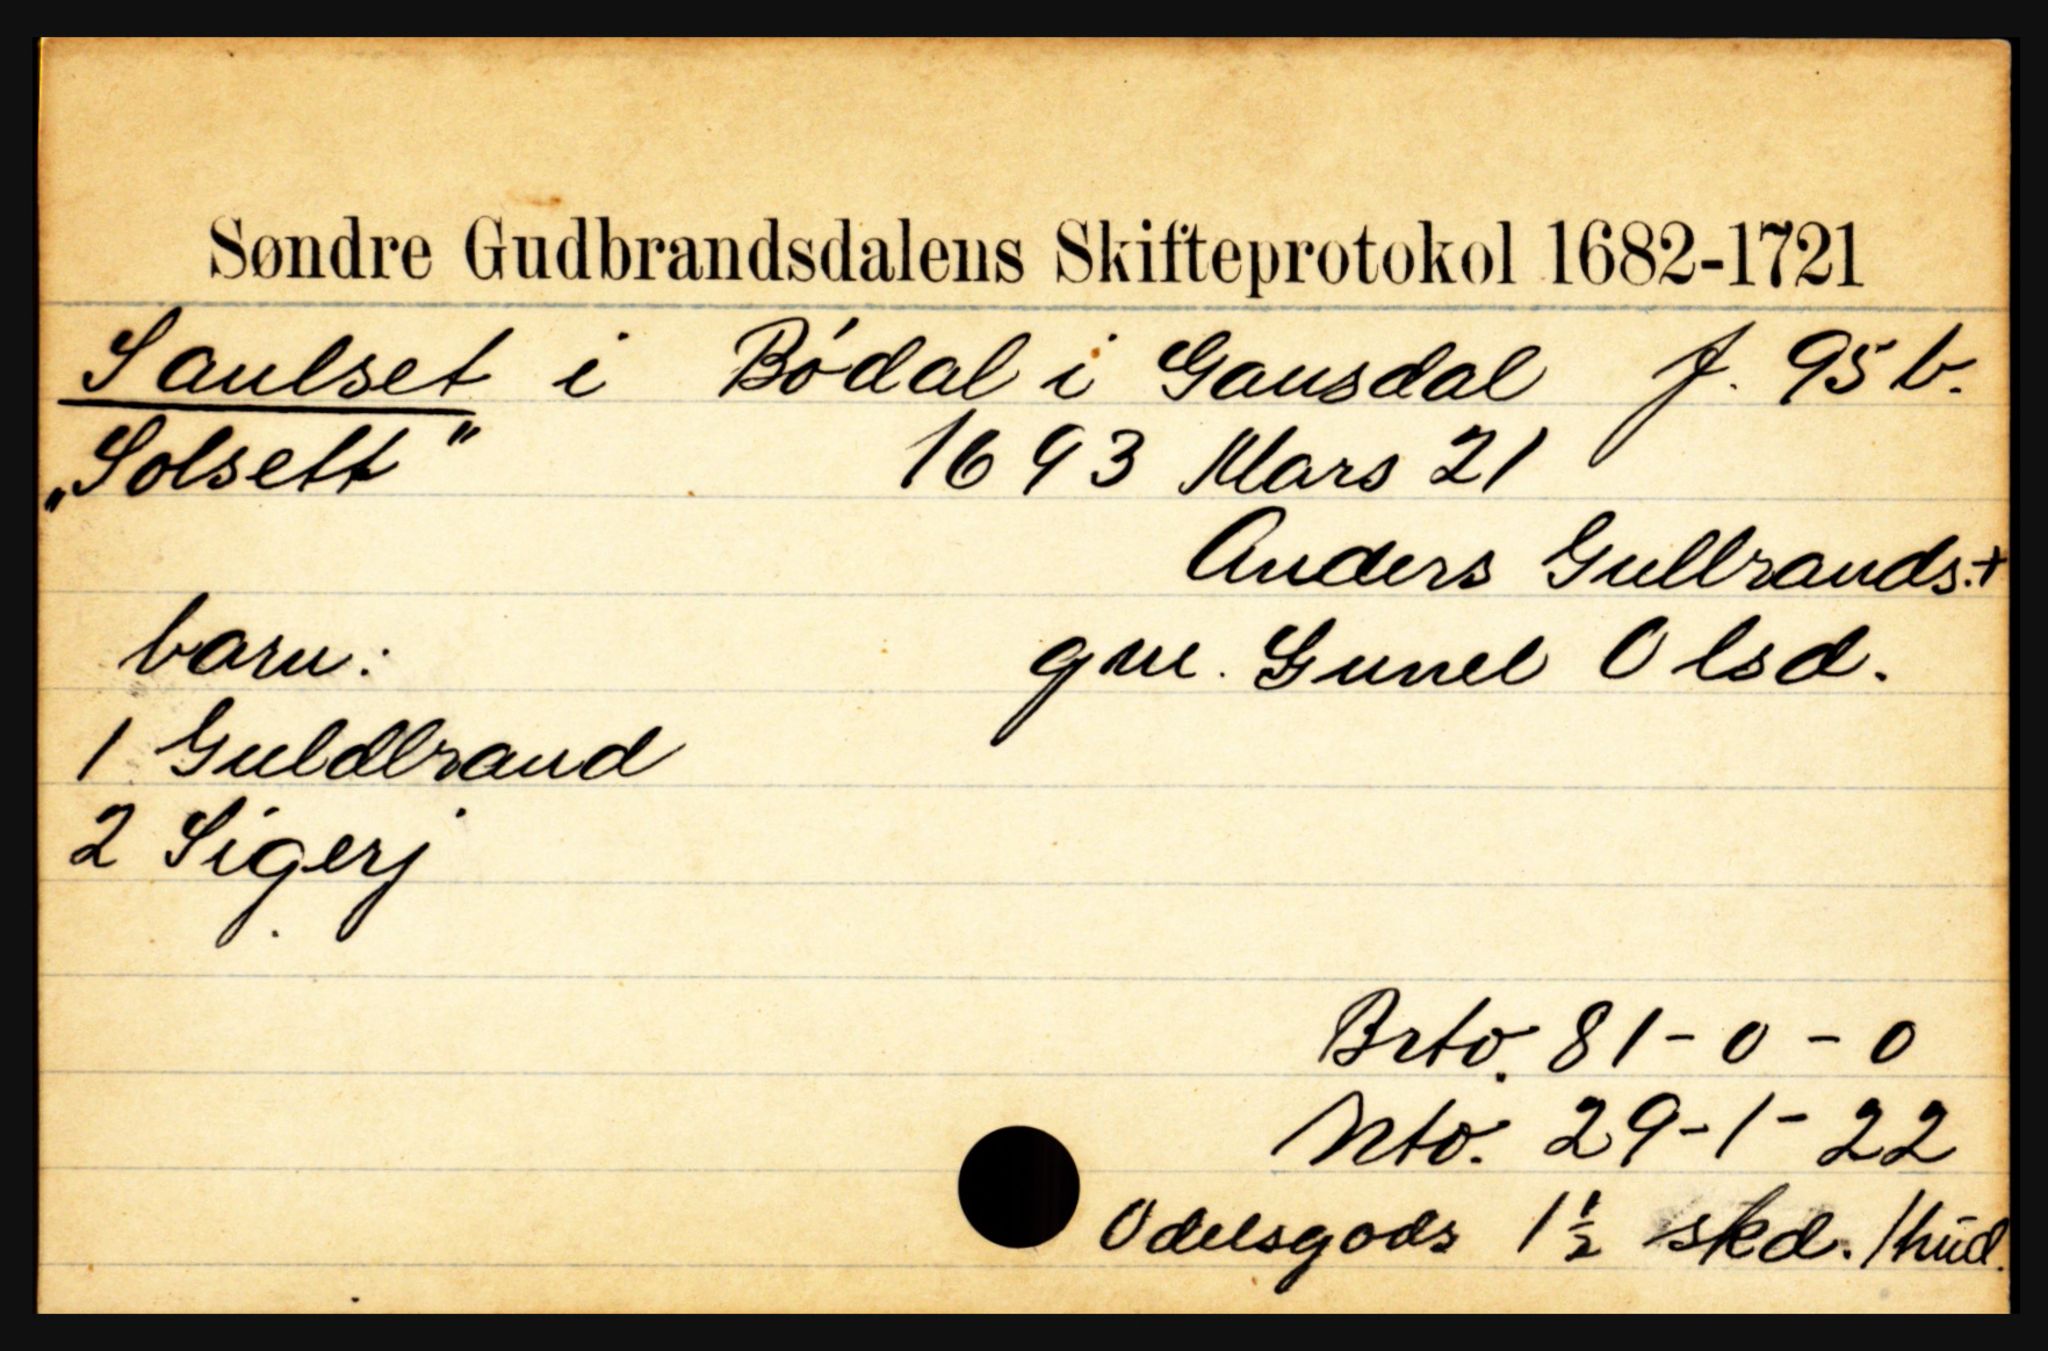 Søndre Gudbrandsdalens Skifteprotokol 1682-1721
Saulset i Bódal i Gausdal f. 95 b.
„Solsett" 1693 Mars 21
Anders Gulbrands.+
barn: gm. Gunel Olsd.
1 Guldbrand
2 Sigerj
Brto. 81-0-0
Nto. 29-1-22
Odelsgods 1 1/2 skd. 1 hud.